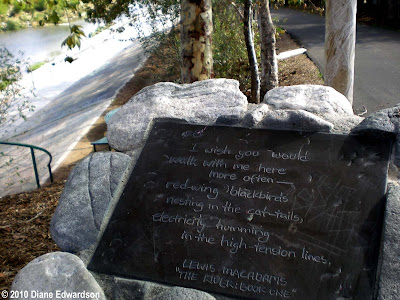 I wish you would
walk with me here
more often—
red-wing blackbirds
nesting in the cat-tails,
electricity humming
in the high-tension lines,
LEWIS MACADAMS
"THE RIVER: BOOK ONE"
©2010 Diane Edwardson